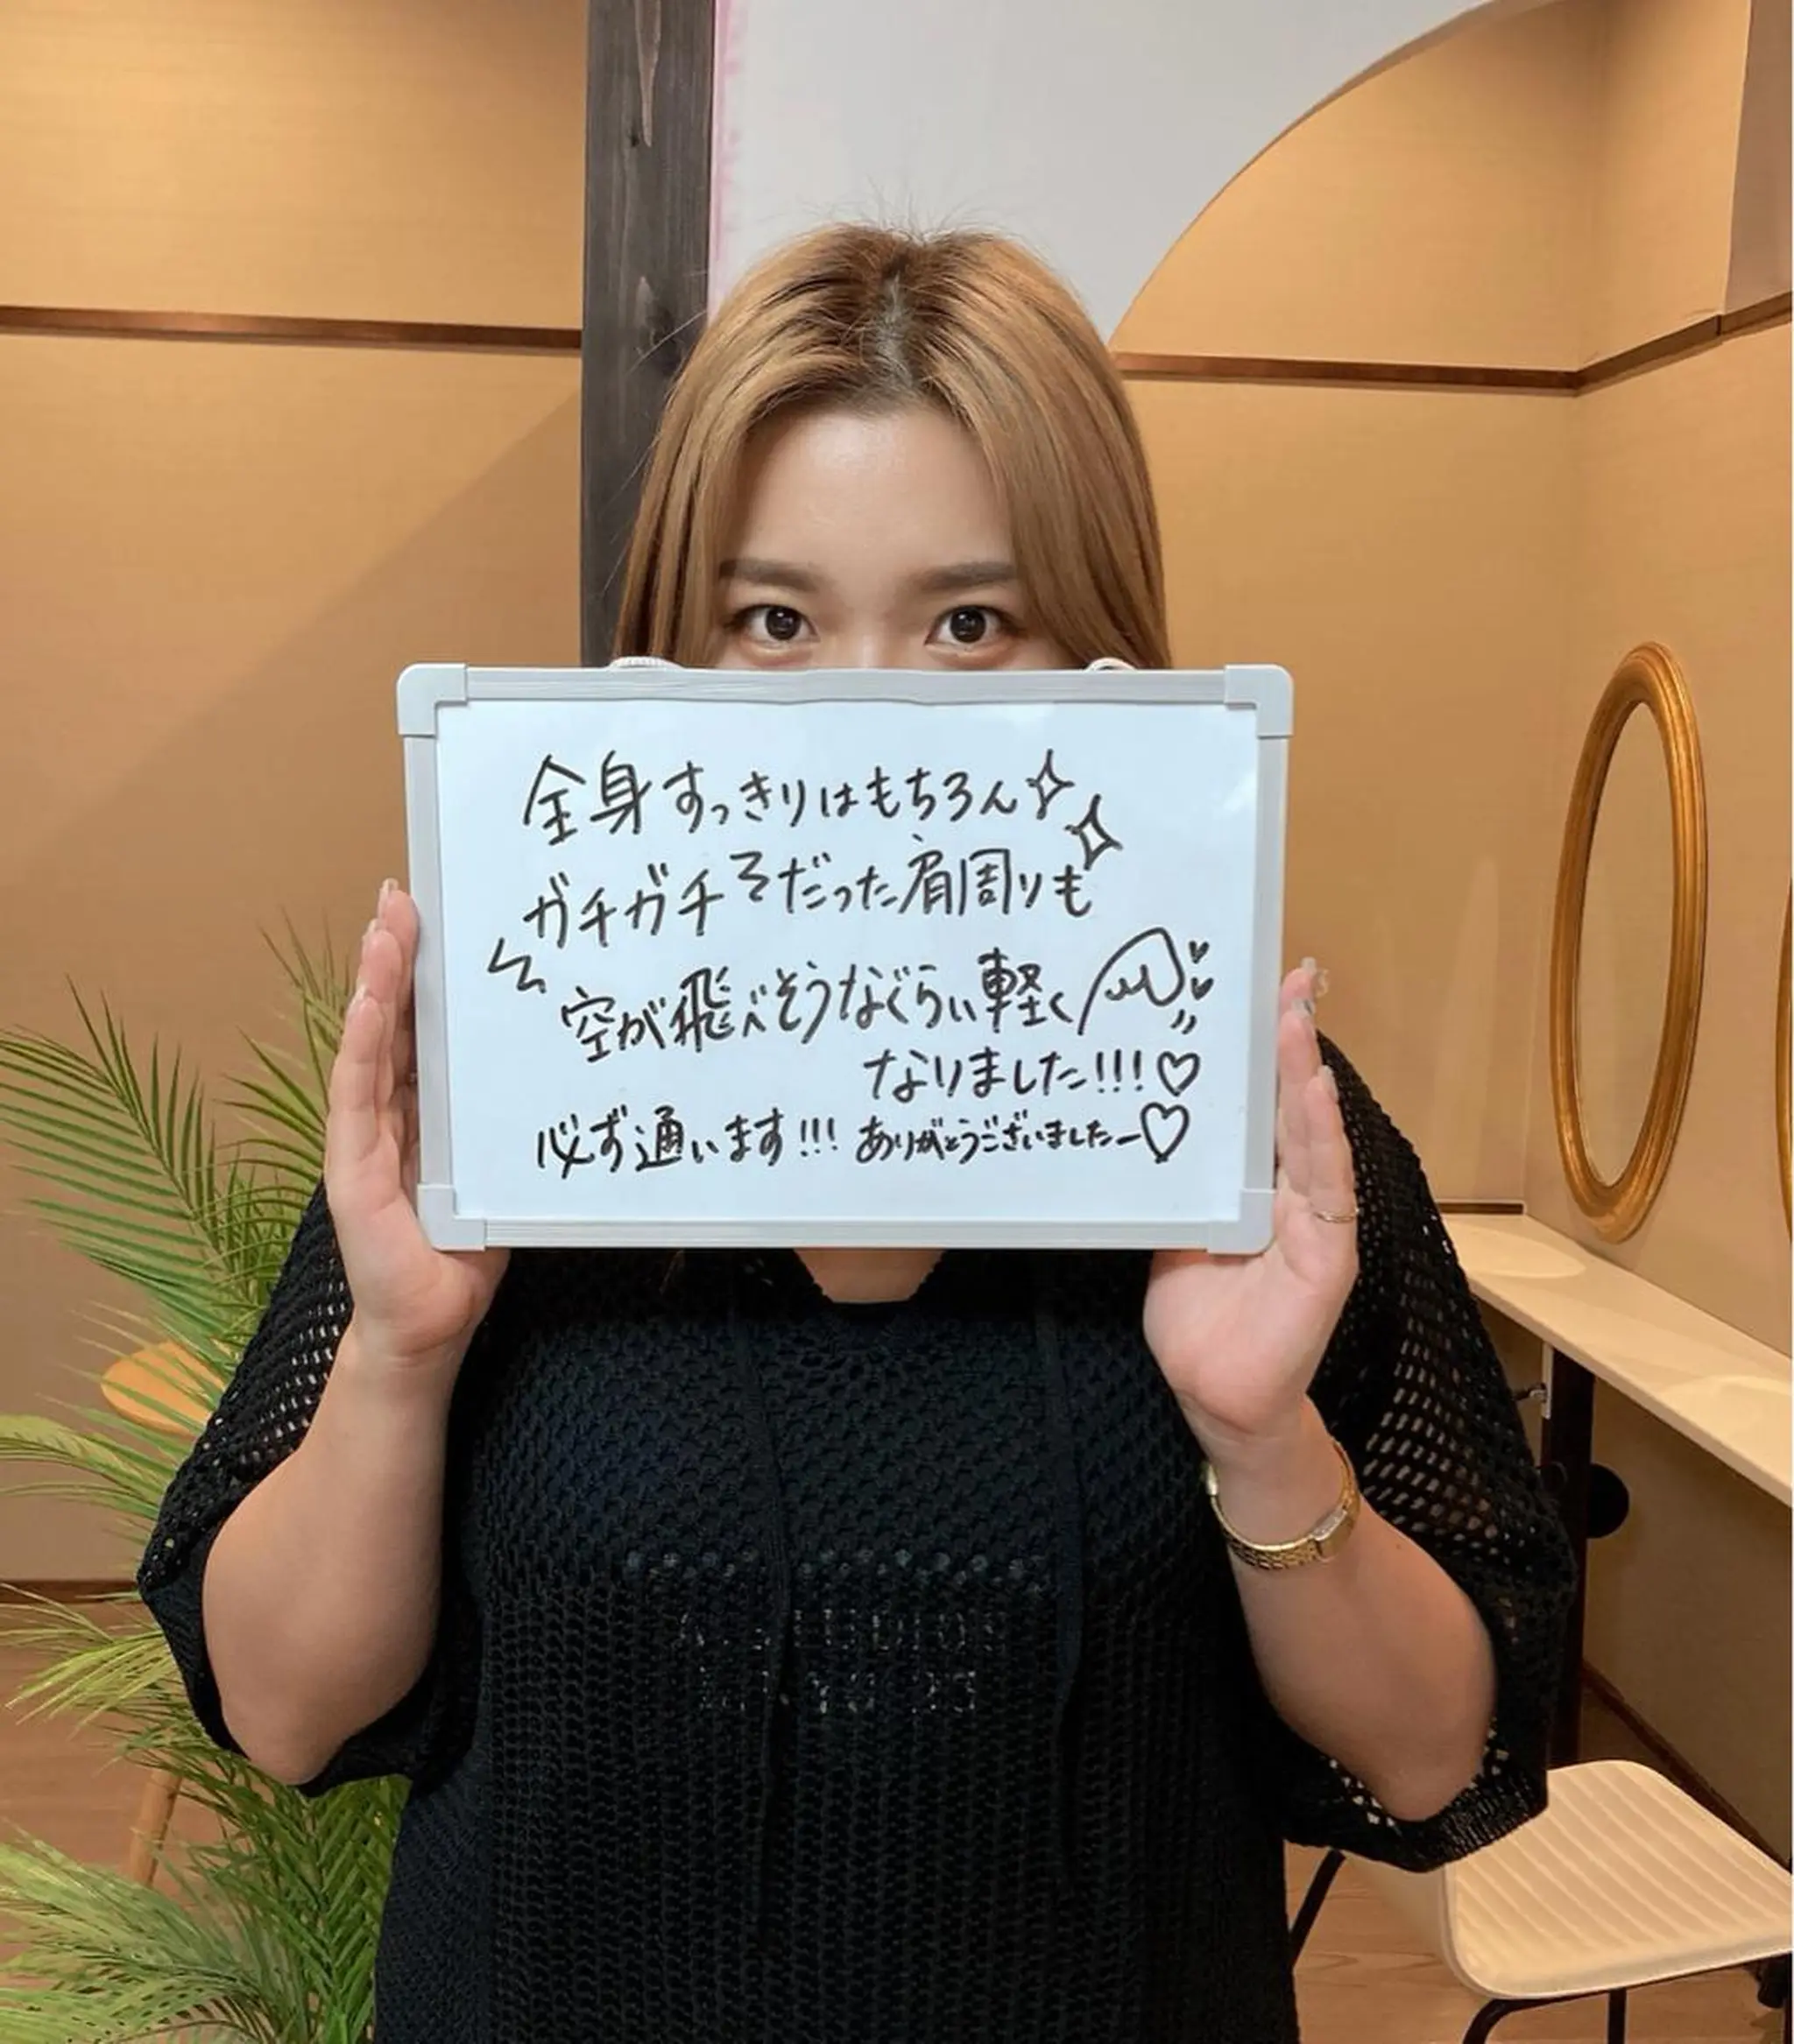 全身すっきりはもちろん
ガチガチだった肩周りも
空が飛べそうなぐらい軽く
なりました!!!♡
必ず通います!!! ありがとうございましたー♡